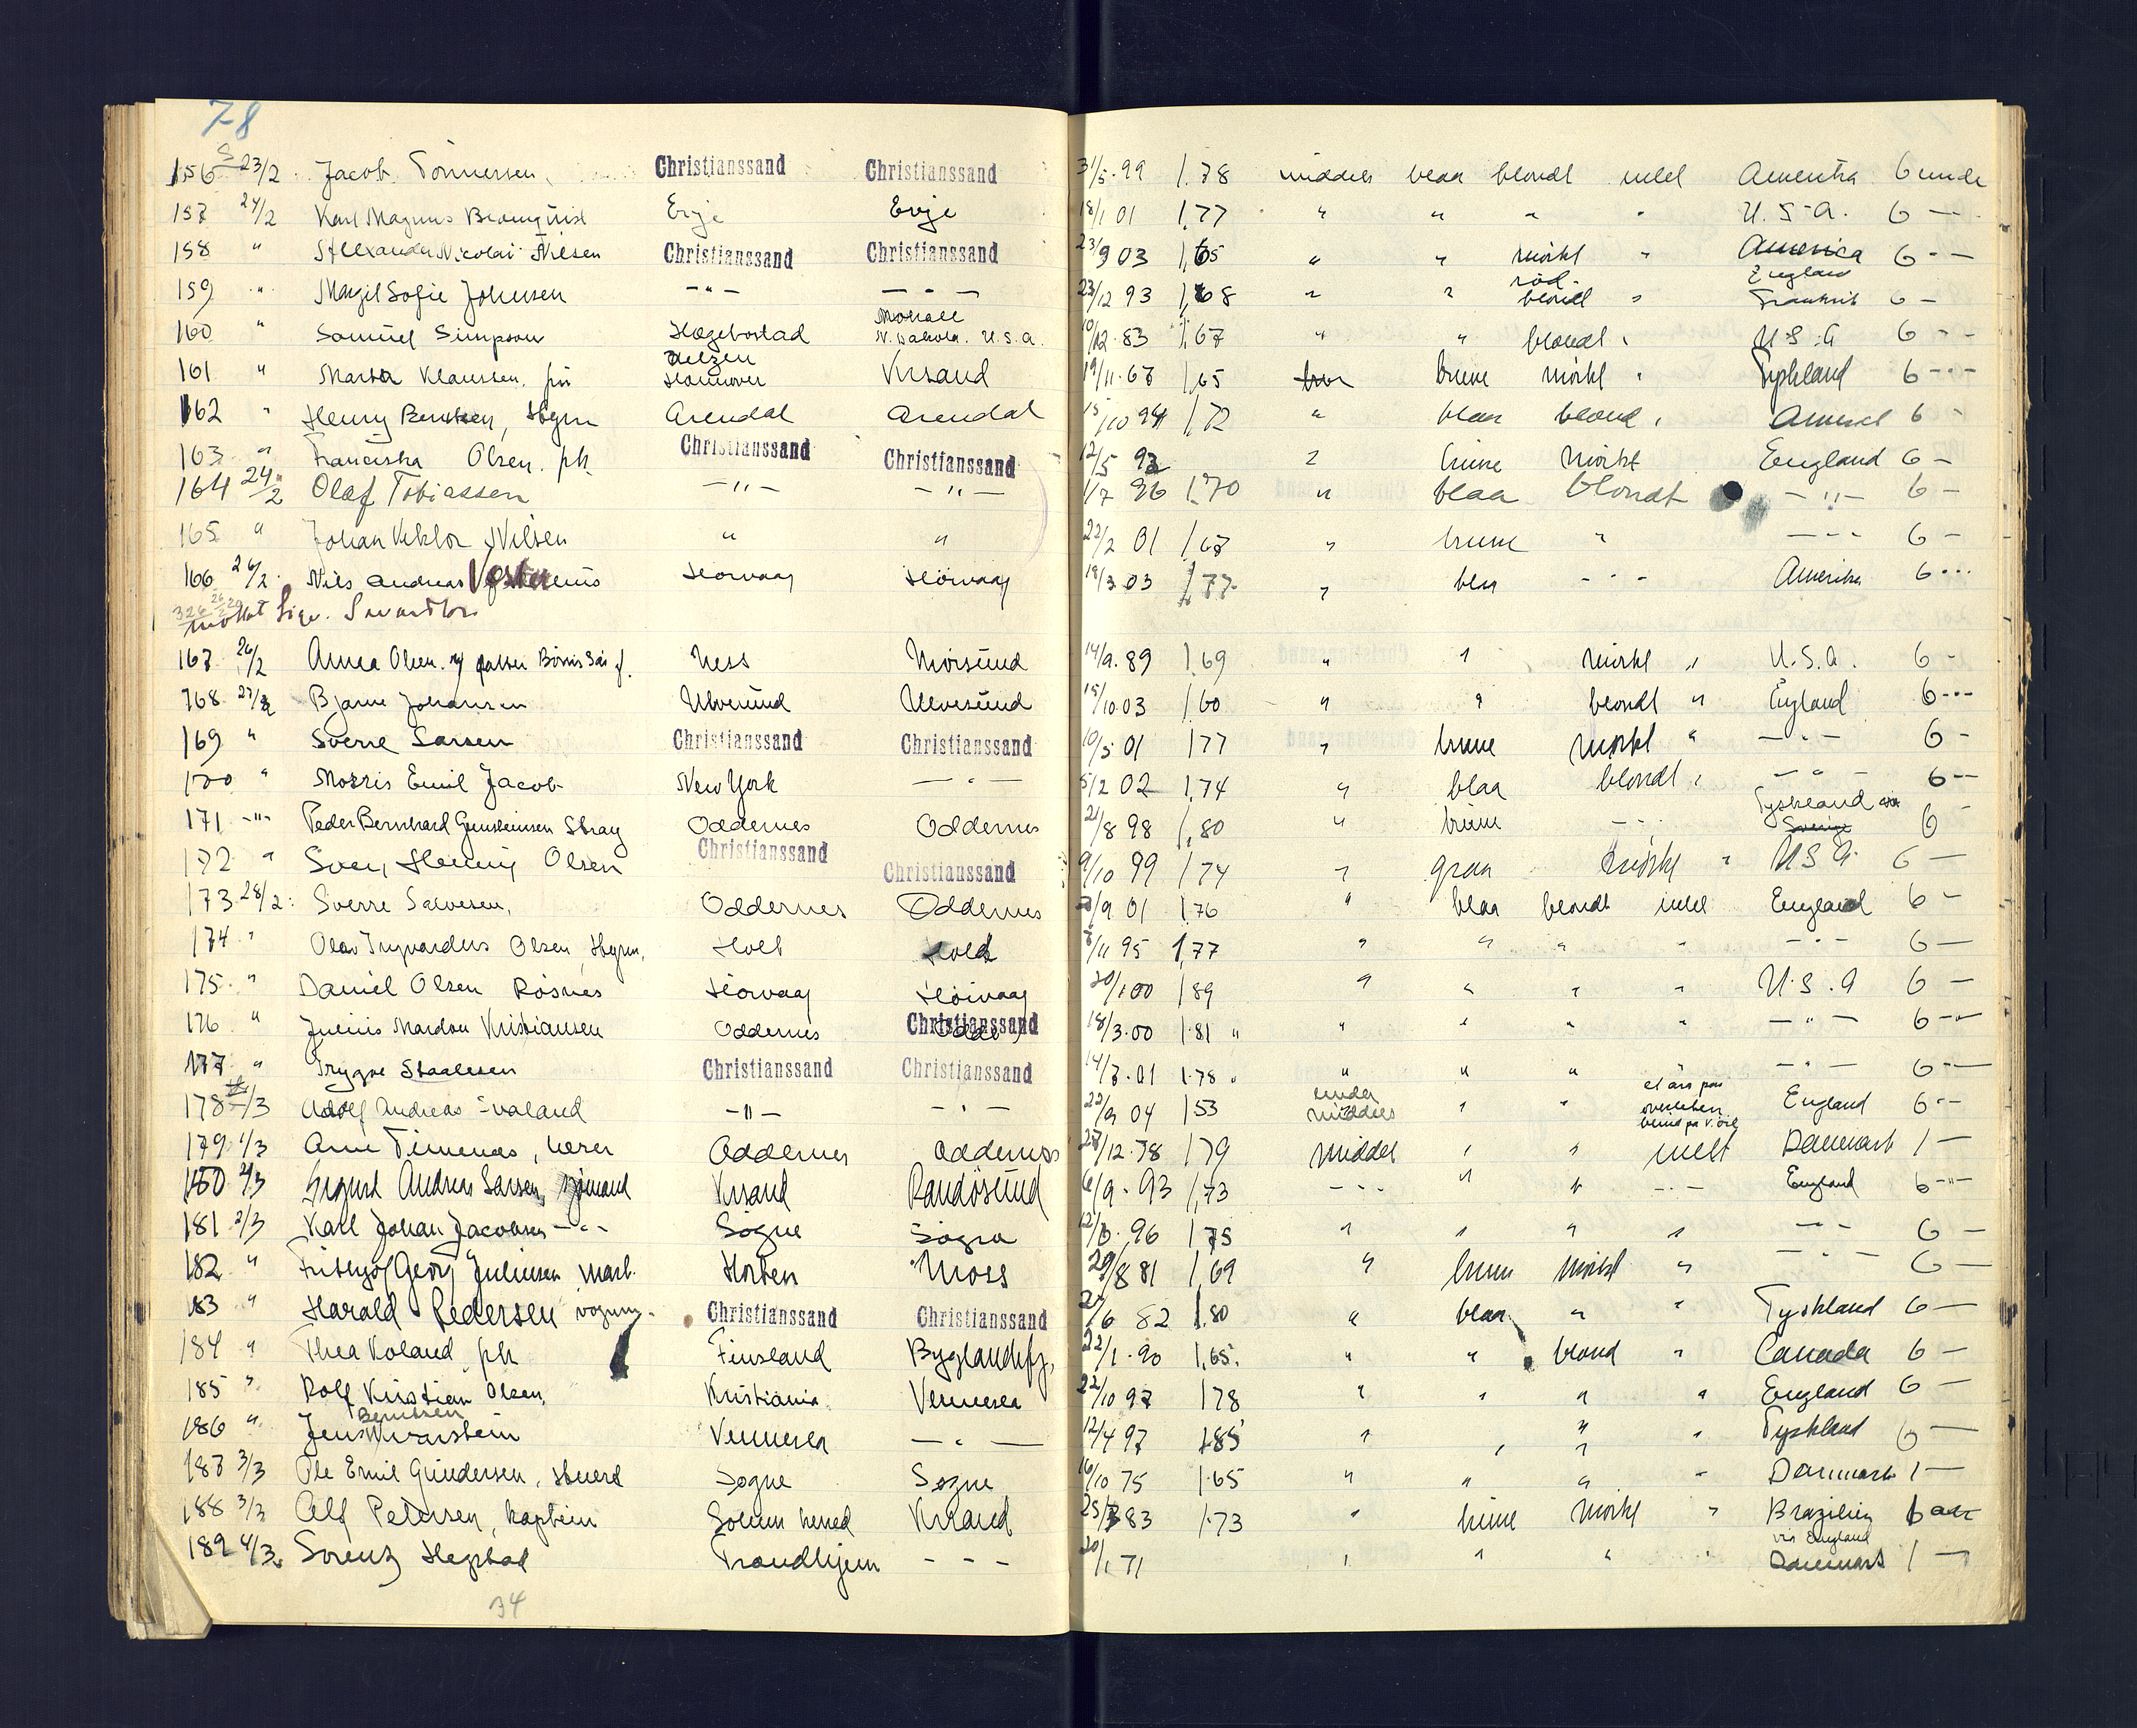 78
156 23/2 Jacob Tönnessen, Christianssand Christianssand 31/5.99 1.78 middels blaa blondt intet Amerika 6 mndr
157 24/2 Karl Magnus Evje Evje 18/1 01 1,77 " " " " U.S.A. 6 —
158 " Alexander Nicolai Nilsen Christianssand Christianssand 23/9 03 1,65 " " mørkt " America England 6 - —
159 " Johnsen — " — — " — 23/12 93 1,68 " " röd. blondt " Frankrik 6 —
160 " Samuel Simpson Hægebostad N. Dakota. U.S.A. 10/12.83 1,67 " " blondt " U.S.A 6 - -
161 " Marta Klaussen, frü Uelzen Hannover Krsand 19/11.67 1,65 brune mörkt " Tyskland 6 - - -
162 " Henry Berntsen, Arendal Arendal 15/10 94 1,72 " blaa blond " 6 -
163 " Franciska Olsen. pk. Christianssand Christianssand 12/5 93 " brune mörkt England 6 -
164 24/2 Olaf Tobiassen — " — — " — 1/7 96 1.70 " blaa blondt — " — 6 -
165 " Johan Viktor Nilsen " " 22/2 01 1,67 " brune " — - - 6 -
166 26/2 Nils Andreas Höivaag Höivaag 18/3 03 1,77 " blaa - - - Amerika 6 - - -
167 26/2 Anna Olsen. Ness Moisund 14/9.89 1.69 " " mörkt " U.S.A. 6 -
168 27/2 Bjarne Johansen Ulvesund Ulvesund 15/10.03 1.60 " " blondt " England 6 - - -
169 " Sverre Larsen Christianssand Christianssand 10/5 01 177 " brune mörkt " — " — 6 -
170 " Morris Emil Jacob New York — " — 5/2 02 1.74 " blaa blondt " — " — 6 --
171 - " - Peder Bernhard Gunsteinsen Stray Oddernes Oddernes 21/8 98 1,80 " brune — - Tyskland Sverige 6 -
172 " Sven Henning Olsen Christianssand Christianssand 9/10 99 1.74 " graa mörkt " U S A. 6 —
173 28/2 Sverre Salvesen, Oddernes Oddernes /9 01 1.76 " blaa blondt intet England 6 -
174 " Olav Ingvardus Olsen, Holt Holt /11 95 1,77 " " " " — " — 6 —
175 " Daniel Olsen Rösnes Höivaag Höivaag 20/1.00 189 " " " " U.S.A 6 —
176 " Julius Mardon Kristiansen Oddernes Christianssand 18/3.00 1.81 " " " " " — " — 6 - —
177 " Trygve Staalesen Christianssand Christianssand 14/7.01 1.78 " " " " — " — 6 - —
178 1/3 Adolf Andreas — " — — " — 22/9 04 153 under middels " " et ars paa England 6 - —
179 1/3 Arne Timenes, lærer Oddernes Oddernes 27/12.78 179 middel " " intet Danmark 1 —
180 2/3 Sigurd Andreas Larsen, sjömand Krsand Randösund 6/9.93 1,73 — - - " " — - — England 6 - " -
181 2/3 Karl Johan Jacobsen — " — Sögne Sögne 12/ .96 1.75 " " " " — - — 6 —
182 " Fridtjof Georg Juliussen Horten Moss 29/8 81 1,69 " brune mörkt " — " — 6 —
183 " Harald Pedersen Christianssand Christianssand /6 82 1.80 " blaa " " Tyskland 6 —
184 " Thea Koland, pk Finsland Byglandsfj. 22/1.90 1,65. " " blond " Canada 6 —
185 " Rolf Kristian Olsen, Kristiania Vennesla 22/10 97 178 " " " " England 6 —
186 " Jens Berntsen Vennesla — " — 12/4 97 1.85 " " " " Tyskland 6 —
187 3/3 Ole Emil Gundersen, Søgne Søgne 16/10 75 1.65 " " " " Danmark 1 —
188 3/3 Alf Petersen, kaptein Solum herred Krsand 25/ 83 1.73 " brune mörkt " Brazilien via England 6
189 4/3 Lorentz Hegstad Trondhjem — - - 20/1 71 " " " " Danmark 1 —
34